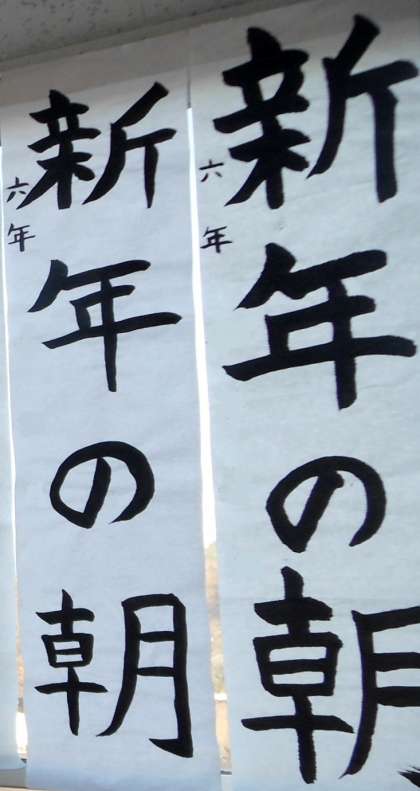 新年の朝
六年
新年の朝
六年